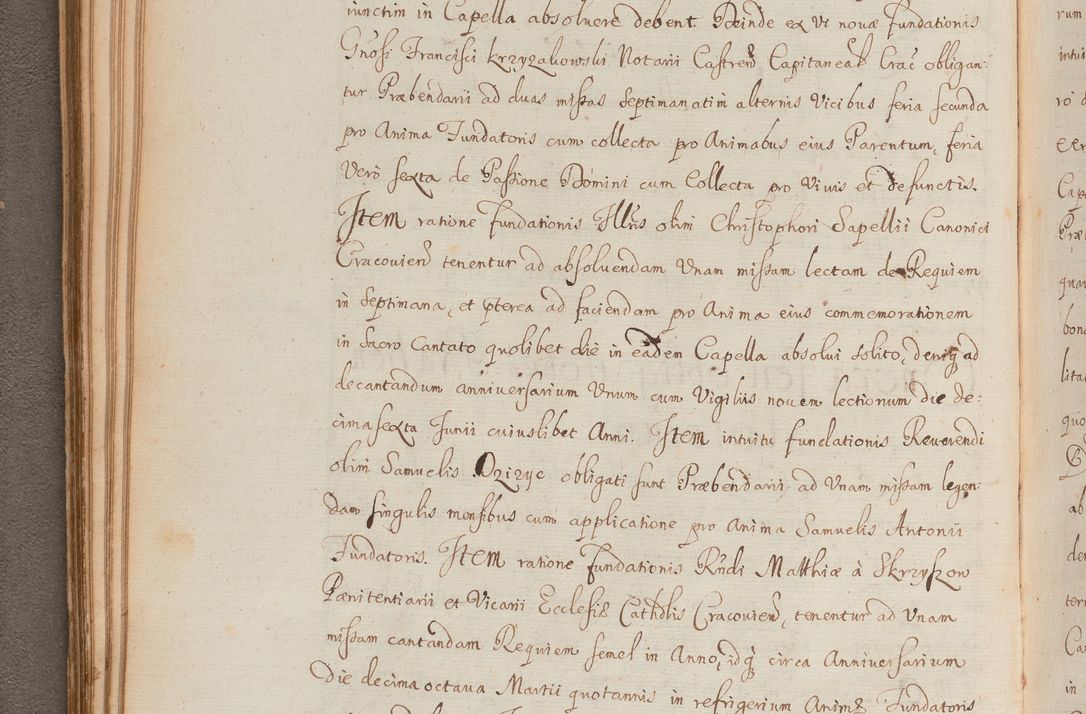 iunctim in Capella absoluere debent. Deinde ex vi novæ fundationis
Gnosi Francisci Krzyzakowski Notarii Castren Capitaneal Crac obligan:
tur Præbendarii ad duas missas septimanatim alternis vicibus feria secunda
pro Anima Fundatoris cum collecta pro Animabus eius Parentum, feria
Verò sexta de Passione Domini cum Collecta pro Vivis et defunctis.
Item ratione fundationis Illris olim Christophori Sapellii Canonici
Cracovien tenentur ad absoluendam Unam missam lectam de Requiem
in Septimana, et pterea ad faciendam pro Anima eius commemorationem
in Sacro Cantato quolibet die in eadem Capella absolui solito, deniq ad
decantandum anniversarium Unum cum Vigiliis novem lectionum die de:
cima sexta Junii cuiuslibet Anni. Item intuitu fundationis Reverendi
olim Samuelis Dzizyc obligati sunt Præbendarii ad Unam missam legen:
dam singulis mensibus cum applicatione pro Anima Samuelis Antonii
Fundatoris. Item ratione fundationis Rndi Matthiæ à Skrzyszow
Pænitentiarii et Vicarii Ecclesiæ Cathdlis Cracovien, tenentur ad Unam
missam cantandam Requiem semel in Anno, idq circa Anniversarium
Die decima octava Martii quotannis in refrigerium Animæ Fundatoris